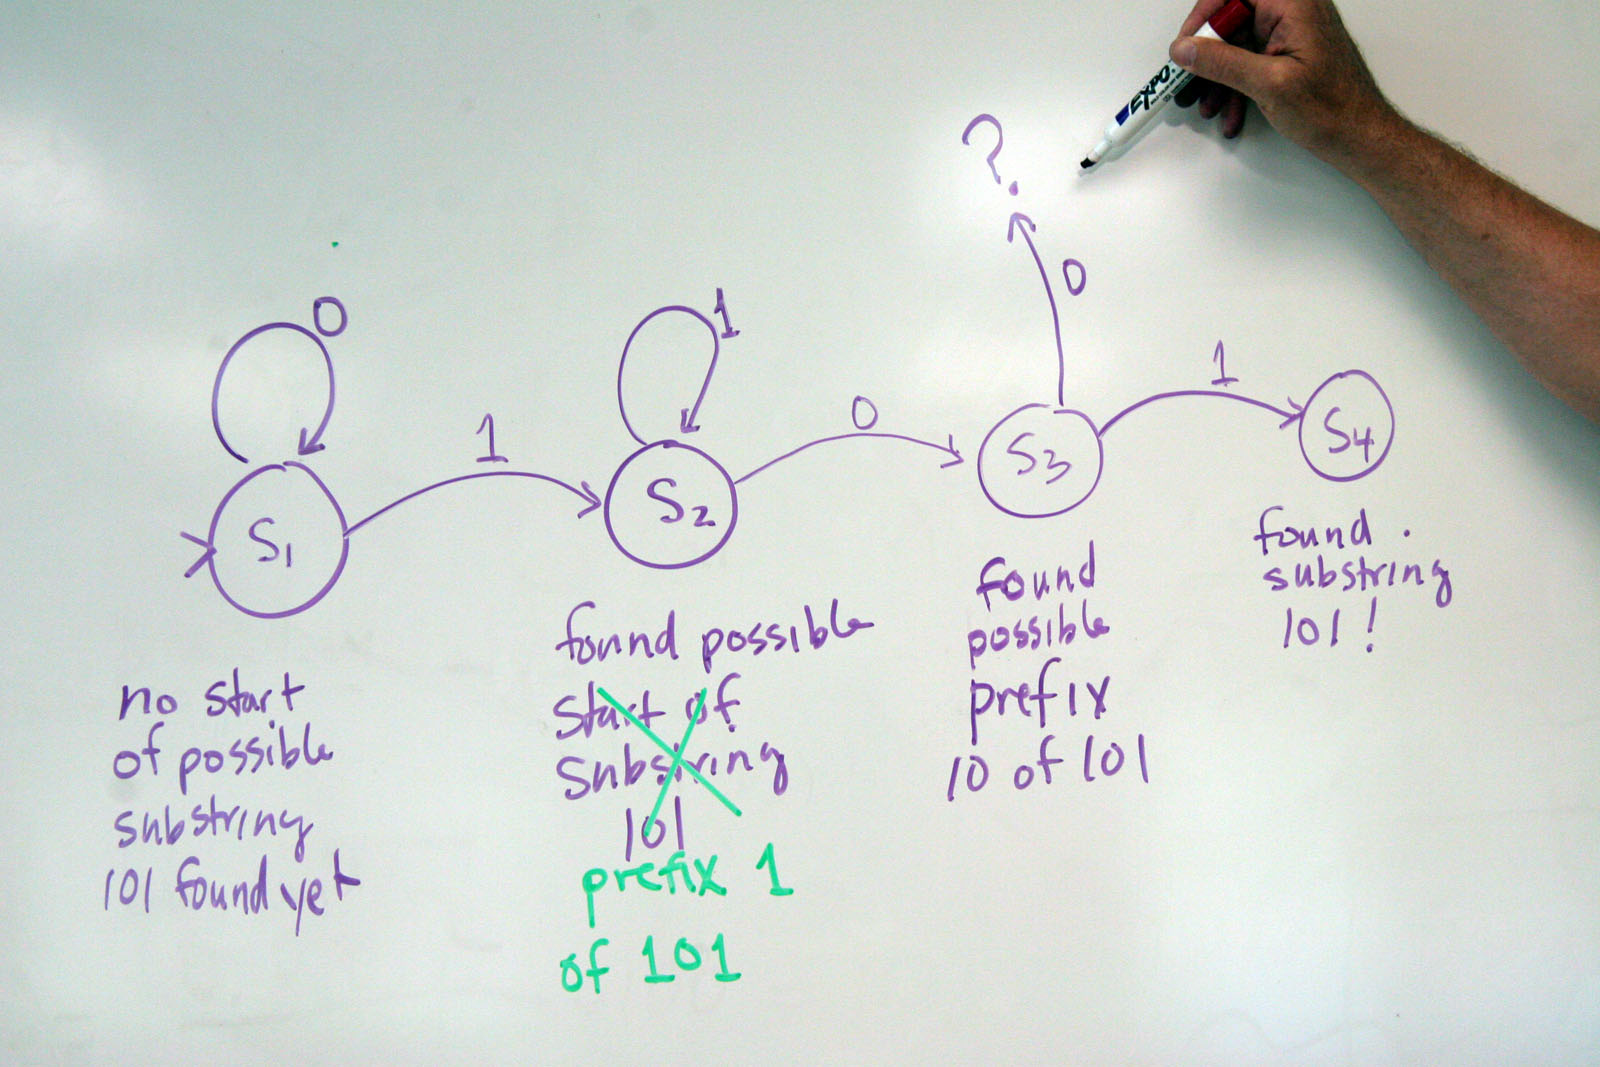 EXPO
?
0
0
1
1
1
0
S1
S2
S3
S4
no start
of possible
substring
101 found yet
found possible
start of
substring
101
prefix 1
of 101
found
possible
prefix
10 of 101
found
substring
101!